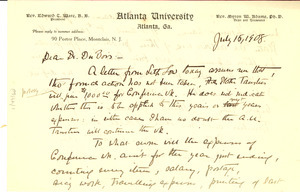 Rev. Edward T. Ware, B. A.
President
Atlanta University
Atlanta, Ga.
Rev. Myron W. Adams, Ph. D.
Please reply to summer address
90 Porter Place, Montclair, N. J.
July 16, 1908
Dear Dr. DuBois—
A letter from Seth Low today assures me that
no formal action has not been taken. The Slater Trustees
will give $1000.00 for Conference Wk. He does not indicate
whether this is to be applied to this year's or next year's
expenses; in either case I have no doubt the A.U.
Trustees will continue the wk.
To what sum will the expenses of
Conference wk. amt for the year just ending,
counting every item, salary, postage,
travelling expenses, printing of